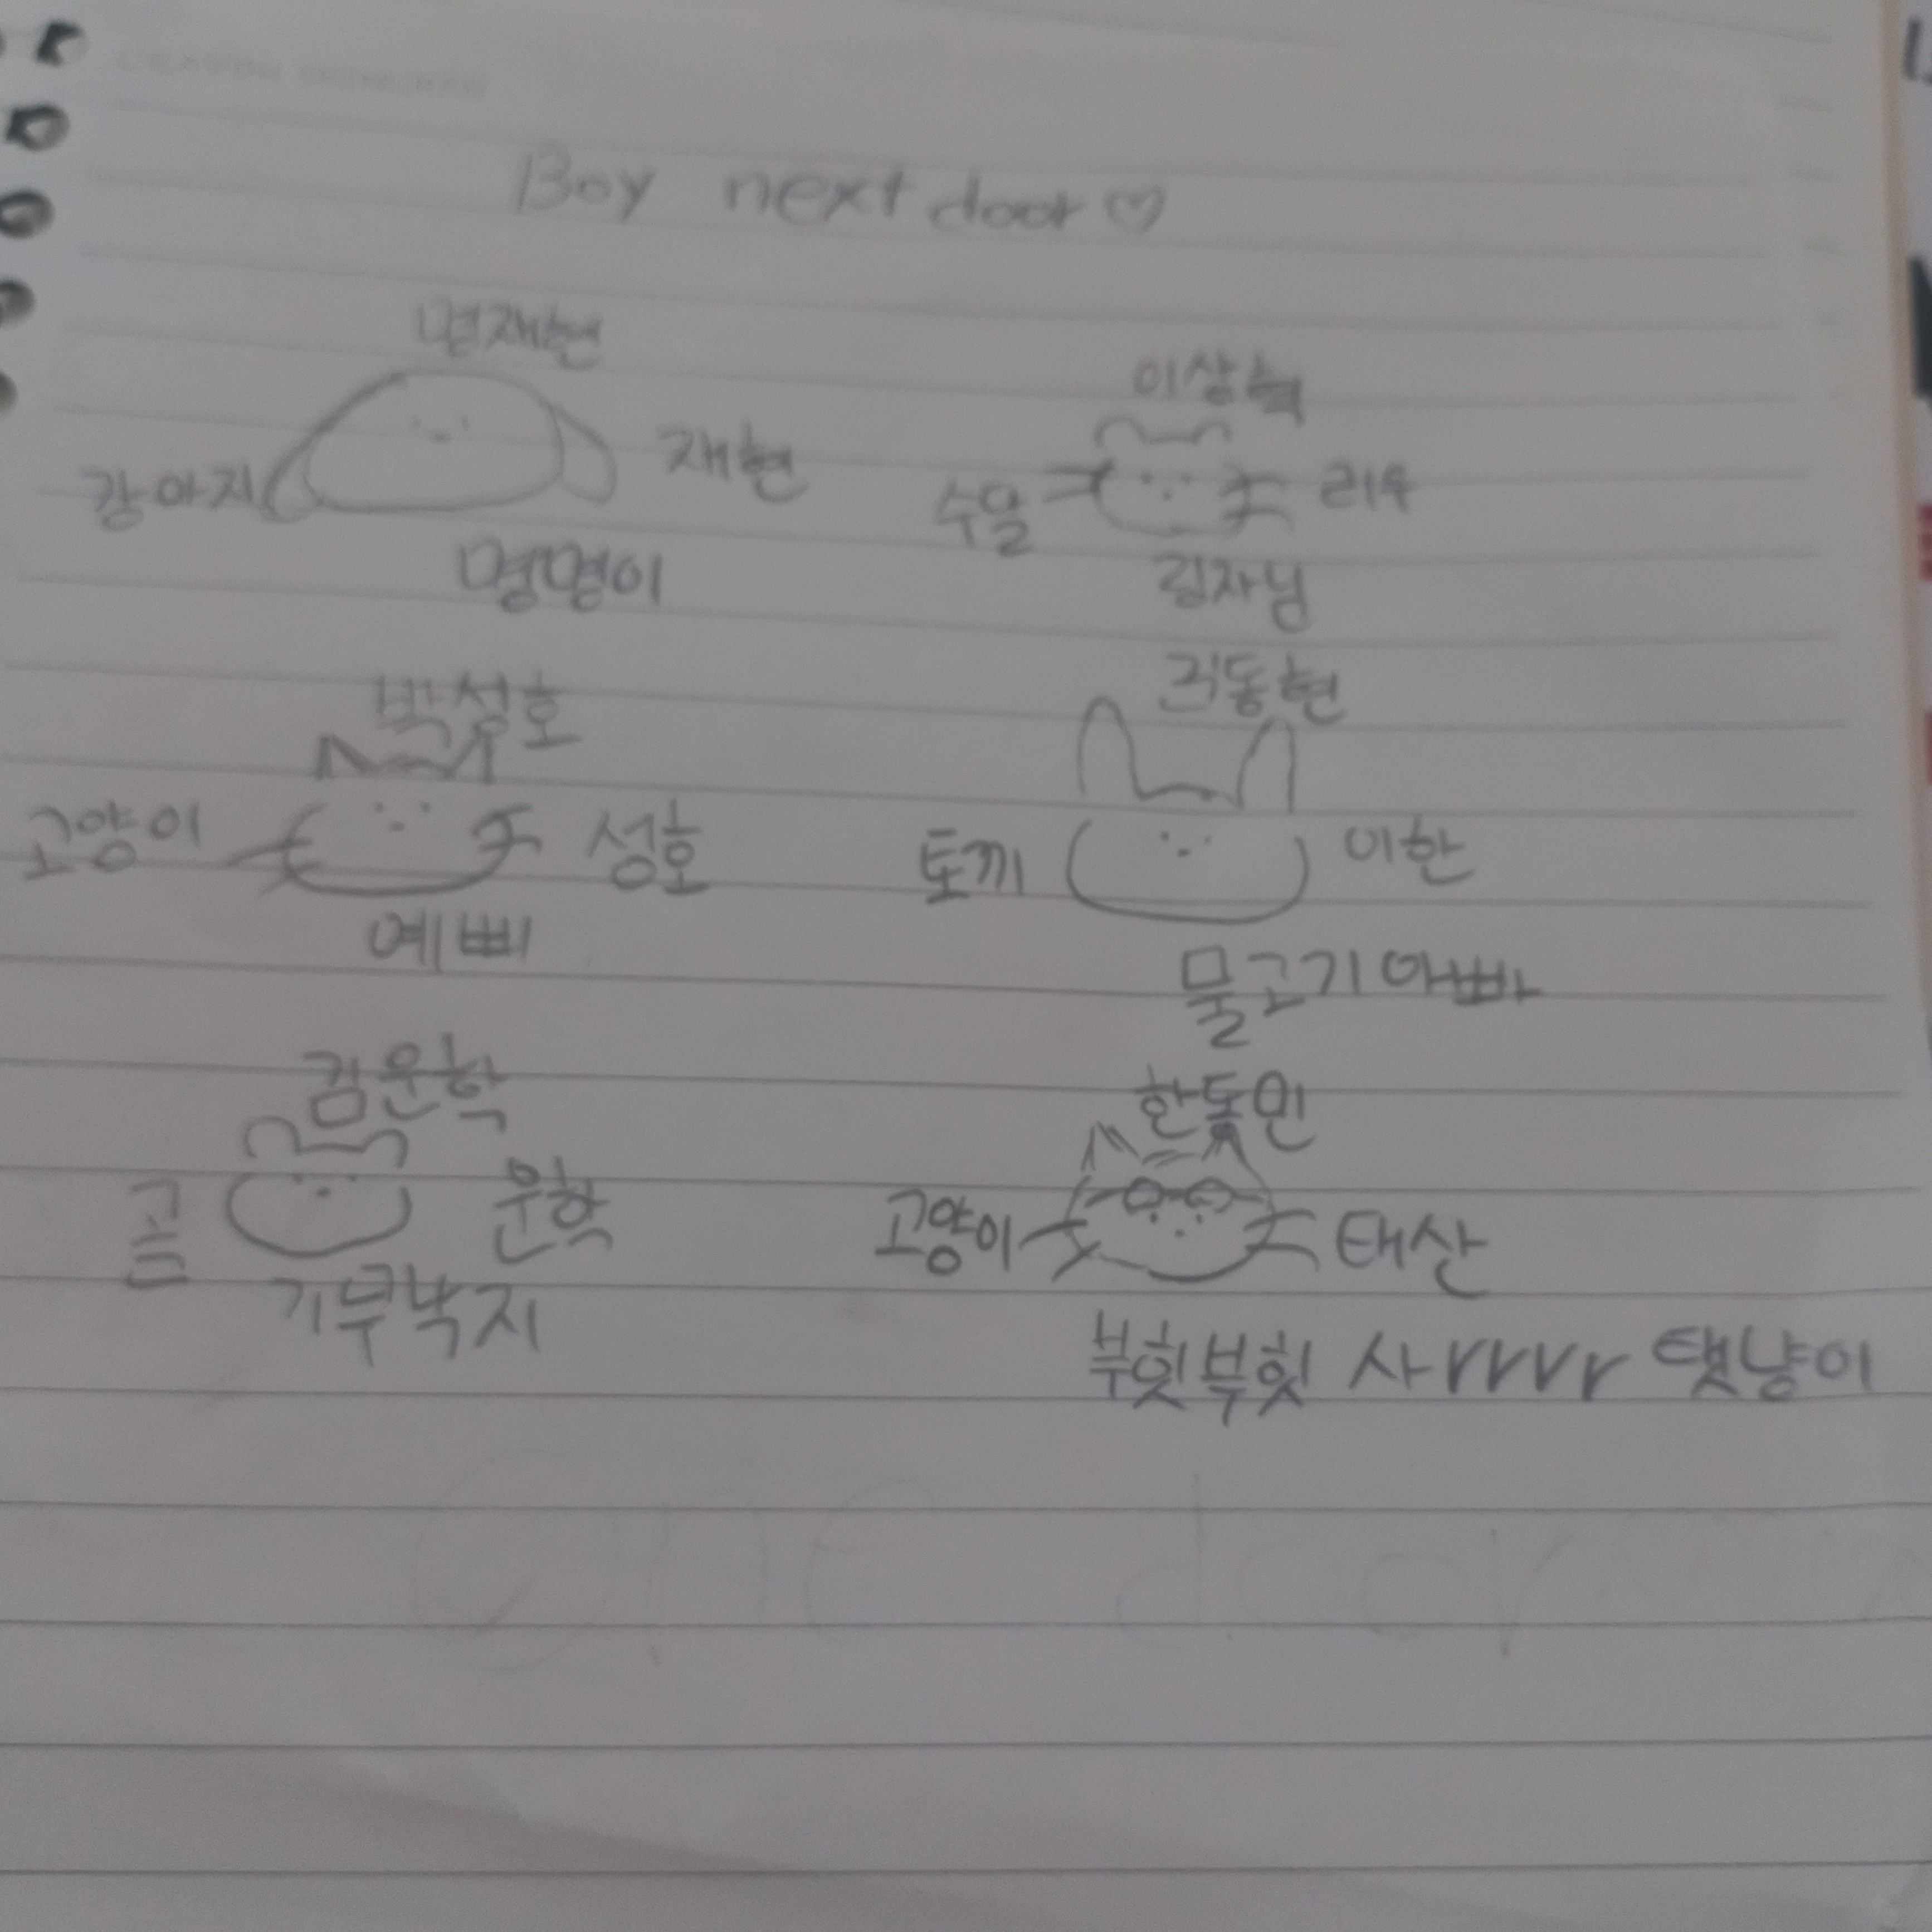 Boy next door♡
명재현
강아지 재현
명명이
이상혁
수달 리우
링자님
박성호
고양이 성호
예삐
김동현
토끼 이한
물고기아빠
김운학
곰 운학
기부낙지
한동민
고양이 태산
부힛부힛 사rrrr 탯냥이
one door